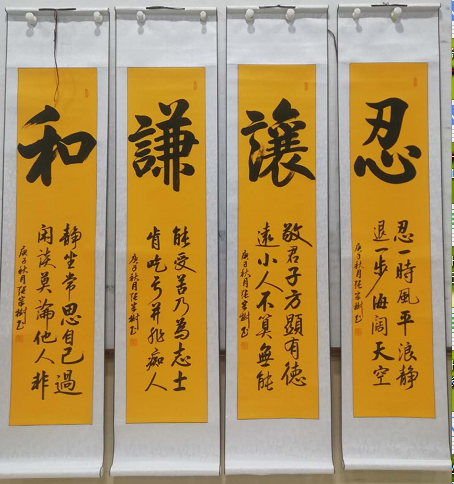 忍
忍一時風平浪静
退一步海闊天空
庚子秋月
讓
敬君子方顯有德
遠小人不算無能
庚子秋月
謙
能受苦乃為志士
肯吃亏并非痴人
庚子秋月
和
静坐常思自己過
閑談莫論他人非
庚子秋月